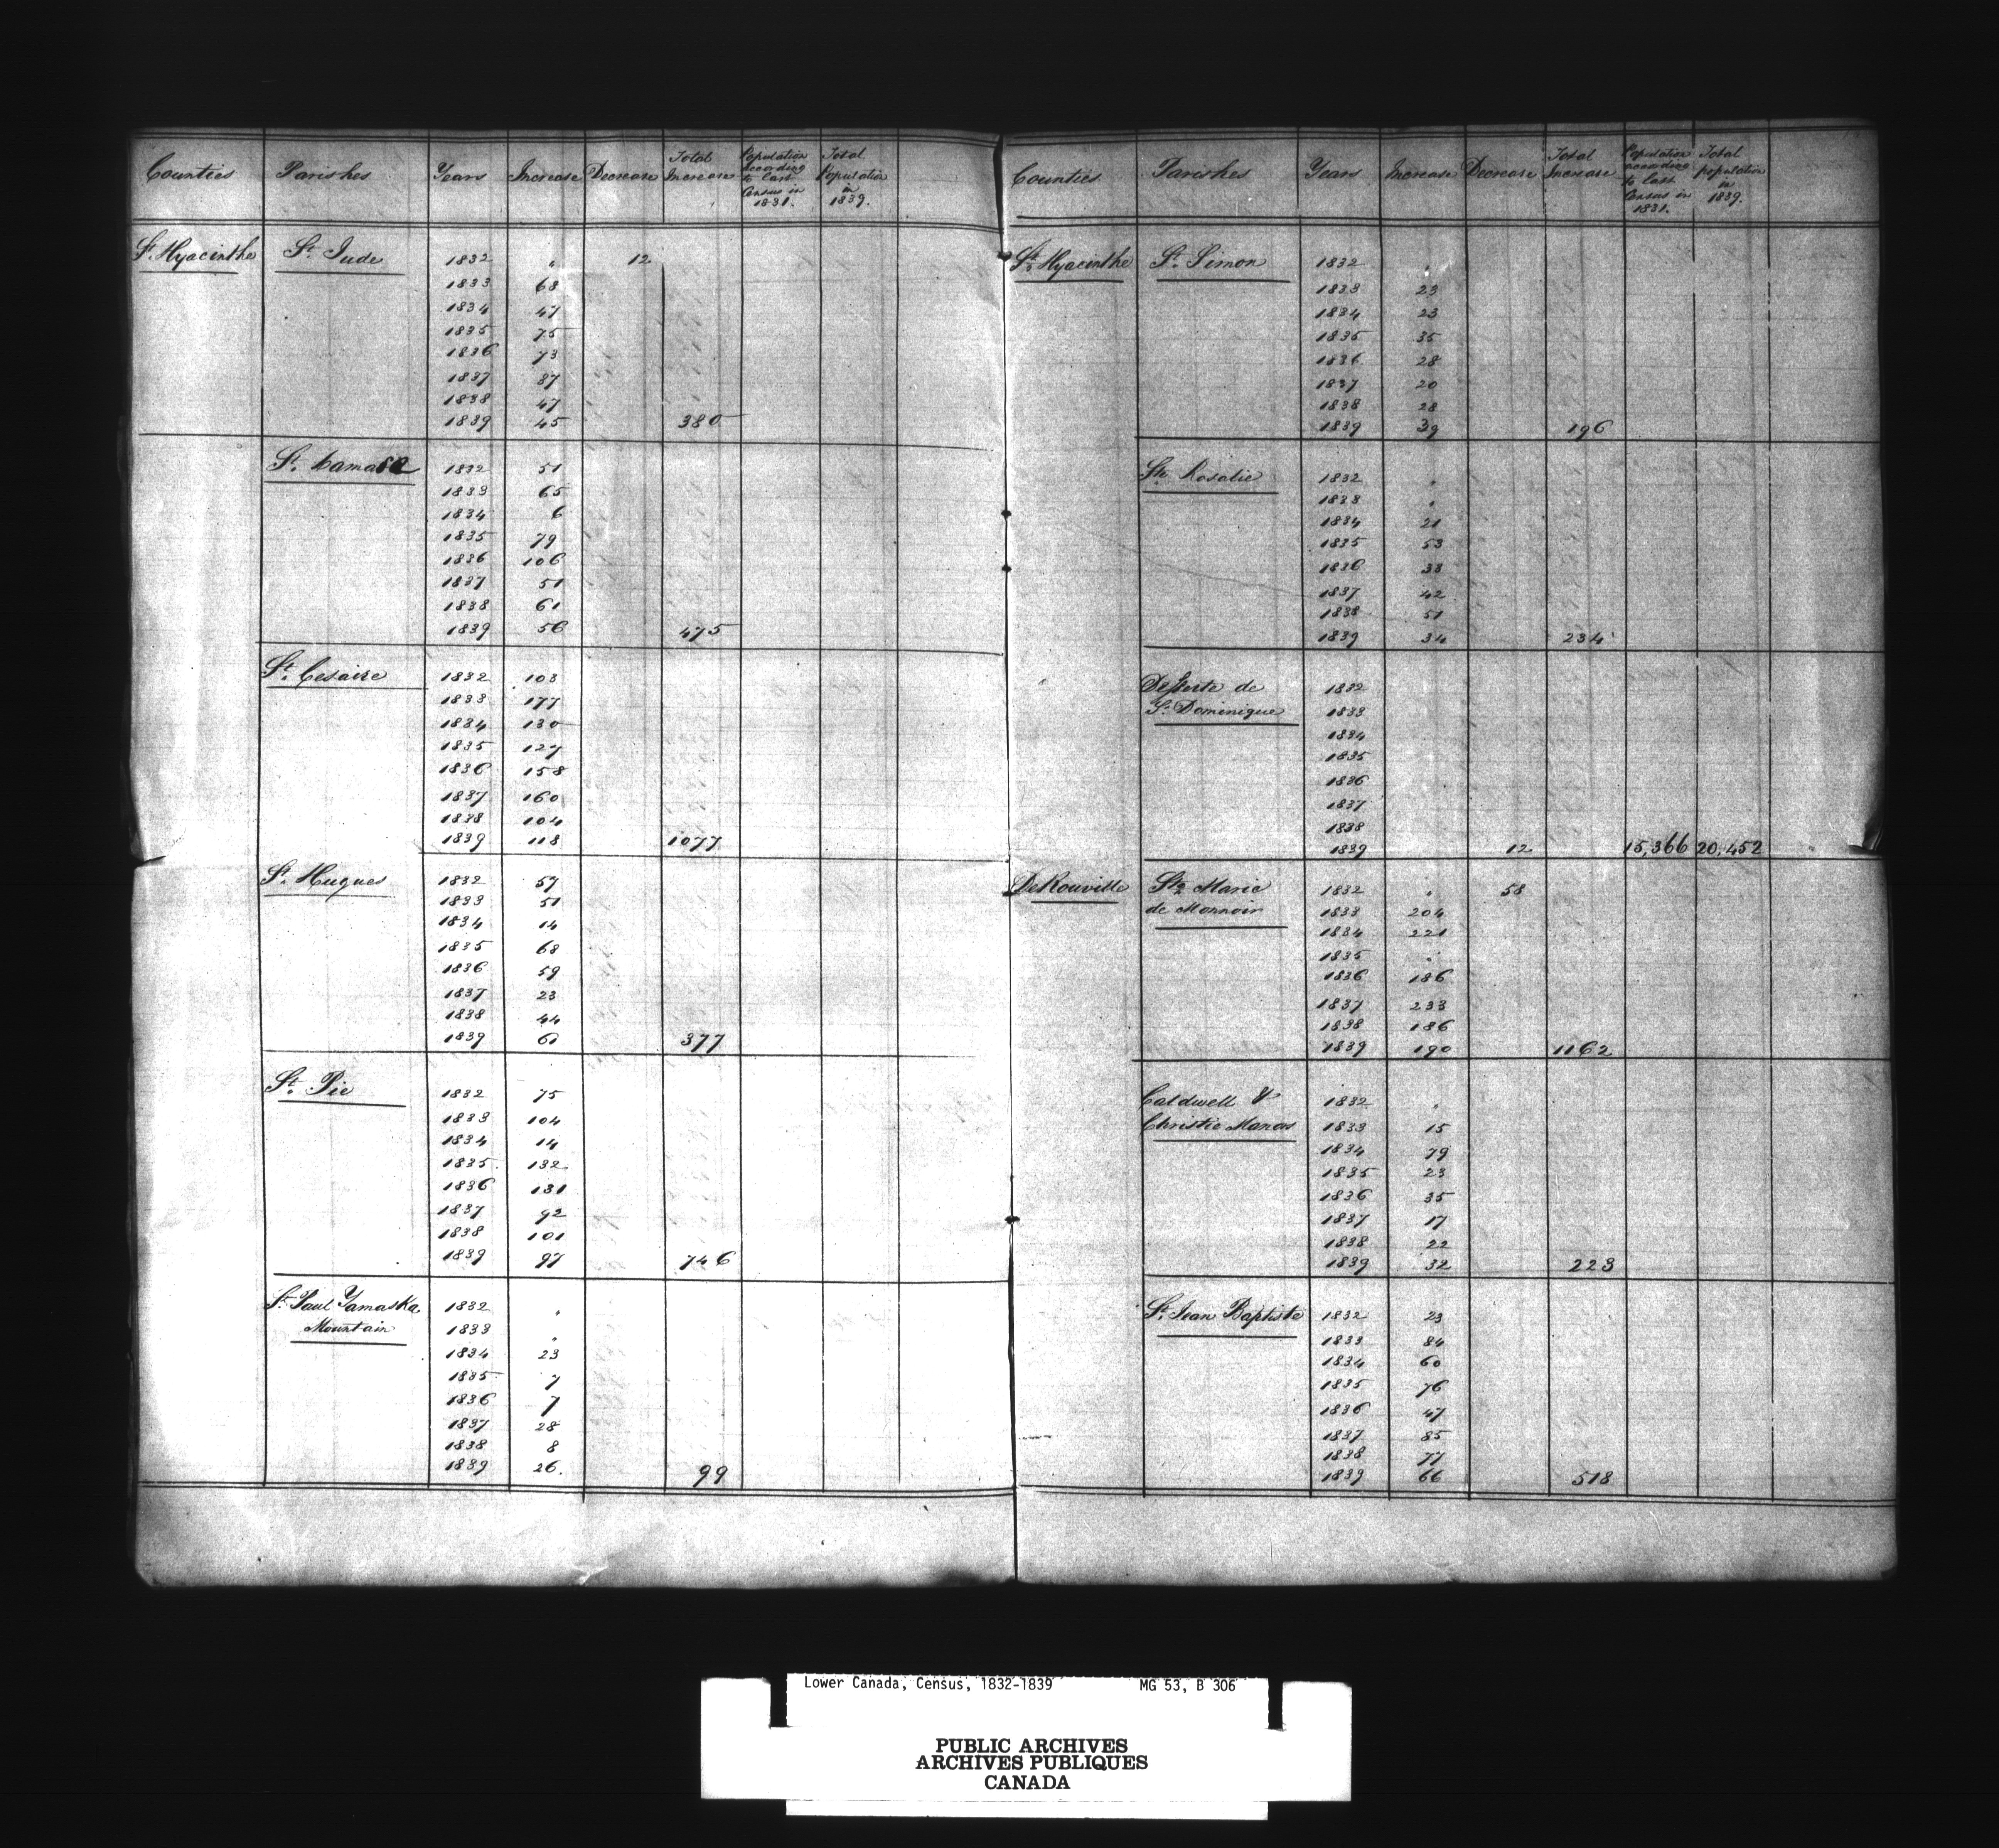 Counties Parishes Years Increase Decrease Total Increase Population according to last Census in 1831. Total Population in 1839.
St. Hyacinthe St. Jude 1832 " 12
1833 68
1834 47
1835 75
1836 73
1837 87
1838 47
1839 45 380
St. Damase 1832 51
1833 65
1834 6
1835 79
1836 106
1837 51
1838 61
1839 56 475
St. Cesaire 1832 103
1833 177
1834 130
1835 127
1836 158
1837 160
1838 104
1839 118 1077
St. Hugues 1832 57
1833 51
1834 14
1835 68
1836 59
1837 23
1838 44
1839 61 377
St. Pie 1832 75
1833 104
1834 14
1835 132
1836 131
1837 92
1838 101
1839 97 746
St. Paul Yamaska 1832 "
Mountain 1833 "
1834 23
1835 7
1836 7
1837 28
1838 8
1839 26. 99
Counties Parishes Years Increase Decrease Total Increase Population according to last Census in 1831. Total population in 1839.
St. Hyacinthe St. Simon 1832 "
1833 23
1834 23
1835 35
1836 28
1837 20
1838 28
1839 39 196
Ste. Rosalie 1832 "
1833 "
1834 21
1835 53
1836 33
1837 42
1838 51
1839 34 234
Desserte de 1832
St. Dominique 1833
1834
1835
1836
1837
1838
1839 12 15,366 20,452
DeRouville Ste. Marie 1832 " 58
de Monnoir 1833 204
1834 221
1835 "
1836 186
1837 233
1838 186
1839 190 1162
Caldwell & 1832 "
Christie Manors 1833 15
1834 79
1835 23
1836 35
1837 17
1838 22
1839 32 223
St. Jean Baptiste 1832 23
1833 84
1834 60
1835 76
1836 47
1837 85
1838 77
1839 66 518
Lower Canada, Census, 1832-1839 MG 53, B 306
PUBLIC ARCHIVES
ARCHIVES PUBLIQUES
CANADA